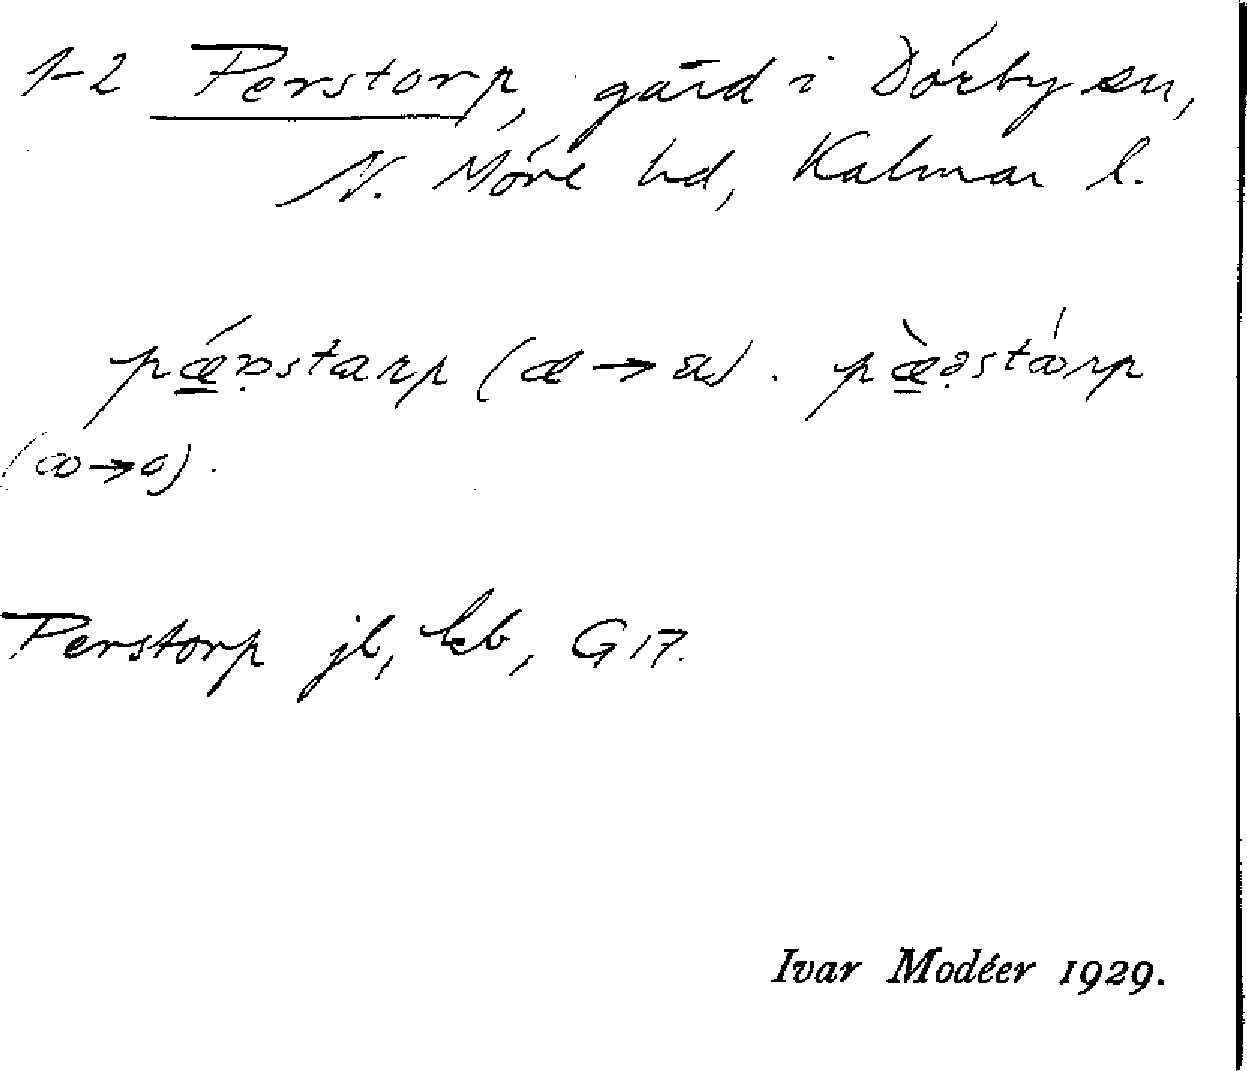 1-2 Perstorp, gård i Dörby sn,
N. Möre hd, Kalmar l.
pǽ̲ɒstarp (a → å). pæ̲̀əstɷ́rp
(ɷ→o).
Perstorp jb, kb, G 17.
Ivar Modéer 1929.